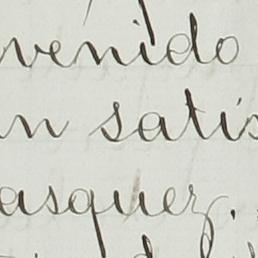 venido
n satis
asquez.